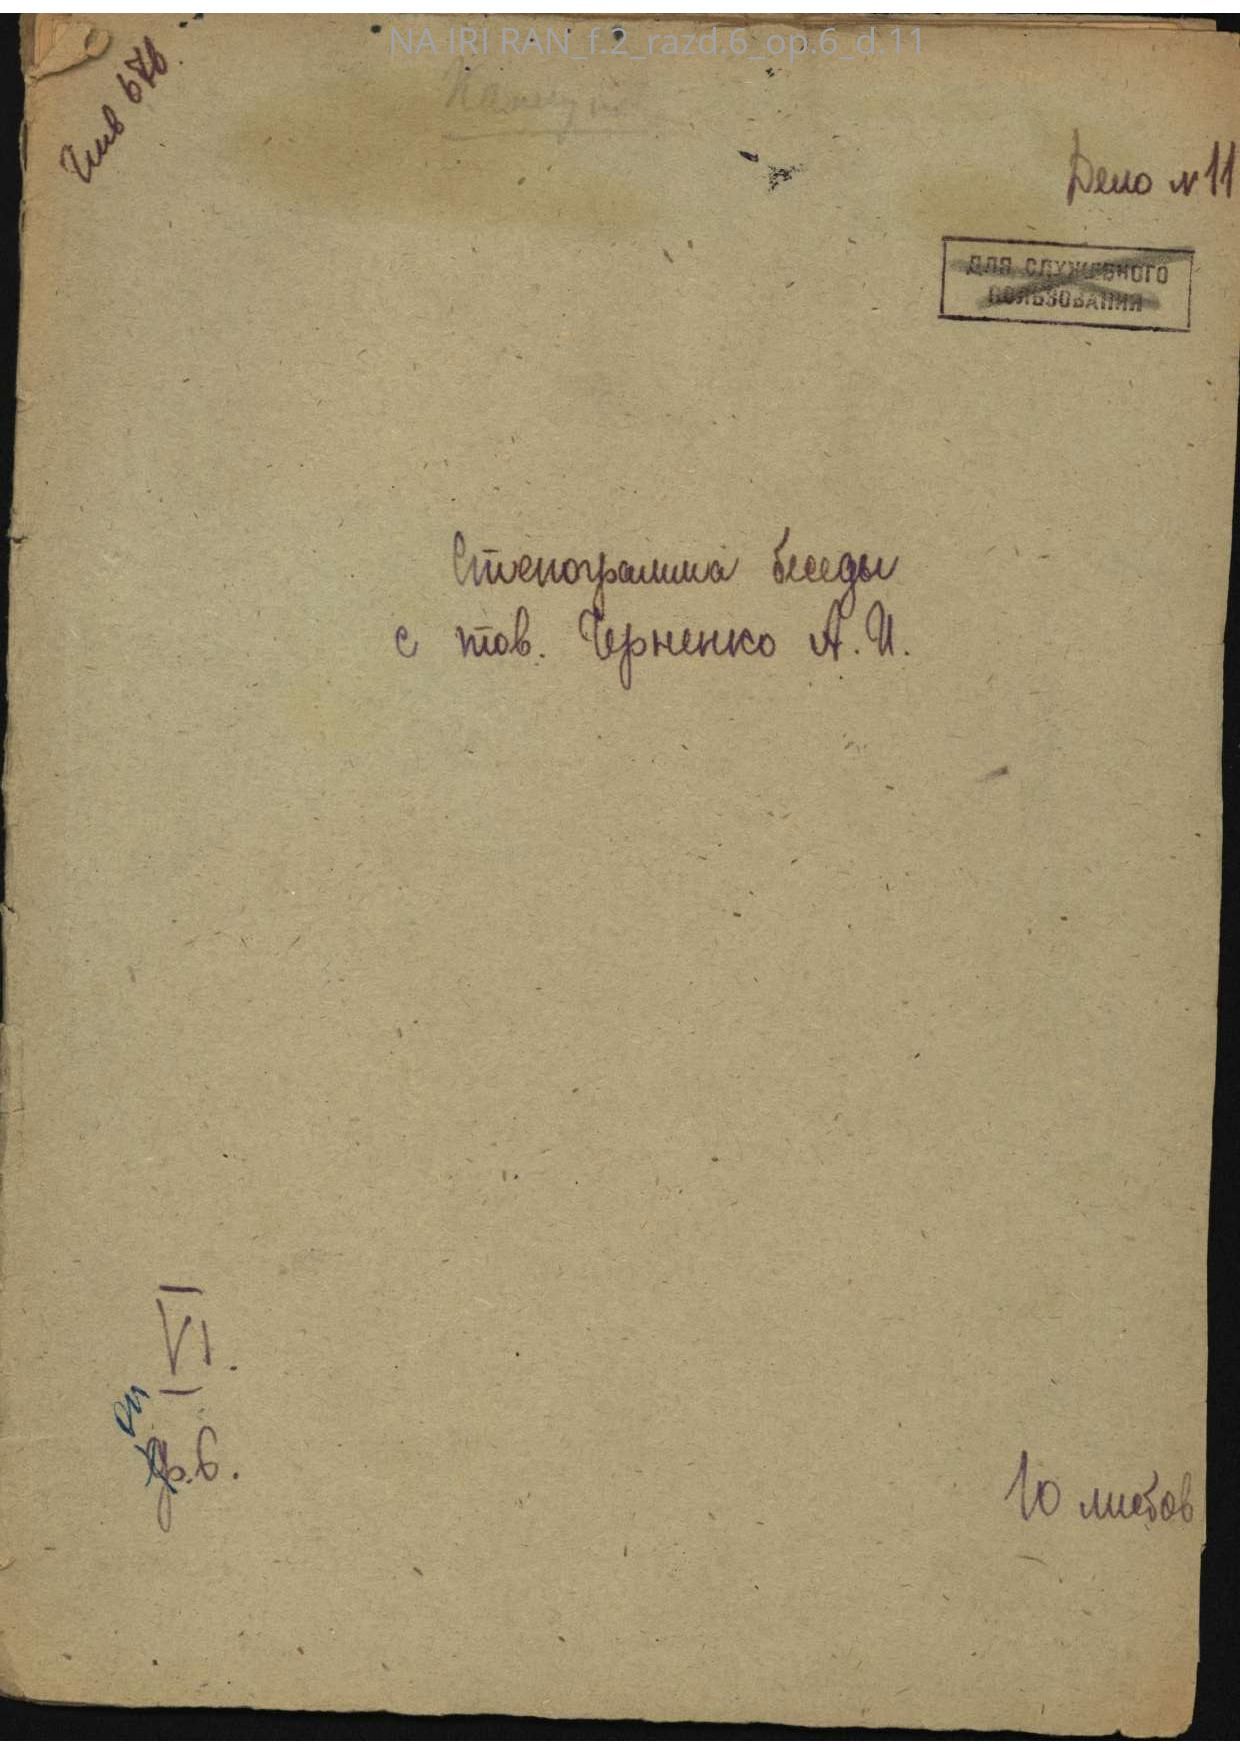 NA IRI RAN_f.2_razd.6_op.6_d.11
Инв 676.
Дело №11
ДЛЯ СЛУЖЕБНОГО
ПОЛЬЗОВАНИЯ
Стенограмма беседы
с тов. Черненко А.И.
VI.
оп
6.
10 листов